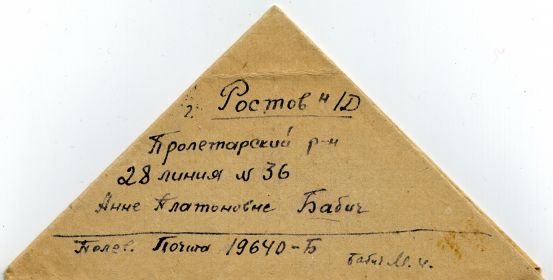 г. Ростов н/Д
Пролетарский р-н
28 линия N 36
Анне Платоновне Бабич
Полев. Почта 19640-Б
Бабич М. И.